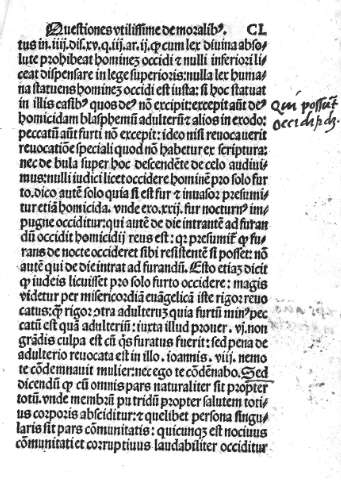 Questiones vtilissime de moralib⁹. CL
tus in.iiij.dis.xv.q.iij.ar.ij.ꝙ cum lex diuina abso-
lute prohibeat hominez occidi ⁊ nulli inferiori li-
ceat dispensare in lege superioris:nulla lex huma-
na statuens hominez occidi est iusta: si hoc statuat
in illis casib⁹ quos de⁹ nō excipit:excepit aūt de⁹
homicidam blasphemū adulterū ⁊ alios in exodo:
peccatū aūt furti nō excepit: ideo nisi reuocauerit
reuocatiōe speciali quod nō habetur ex scriptura:
nec de bula super hoc descendēte de celo audiui-
mus:nulli iudici licet occidere hominē pro solo fur
to.dico autē solo quia si est fur ⁊ inuasor presumi-
tur etiā homicida. vnde exo.xxij. fur nocturn⁹ im-
pugne occiditur:qui autē de die intrantē ad furan
dū occidit homicidij reus est: qr presumit̄ ꝙ fu-
rans de nocte occideret sibi resistentē si posset: nō
autē qui de die intrat ad furandū. Esto etiaz dicit
ꝙ iudeis licuisset pro solo furto occidere: magis
videtur per misericordiā euāgelicā iste rigor reuo
catus:ꝙ rigor cōtra adulteruz quia furtū min⁹ pec
catū est quā adulteriū: iuxta illud prouer. vj.non
grādis culpa est cū qs furatus fuerit: sed pena de
adulterio reuocata est in illo. ioannis. viij. nemo
te cōdemnauit mulier:nec ego te cōdēnabo. Sed
dicendū ꝙ cū omnis pars naturaliter sit propter
totū.vnde membrū putridū propter salutem toti-
us corporis absciditur:⁊ quelibet persona singu-
laris sit pars cōmunitatis: quicunqz est nociuus
cōmunitati et corruptiuus laudabiliter occiditur
Qui possūt